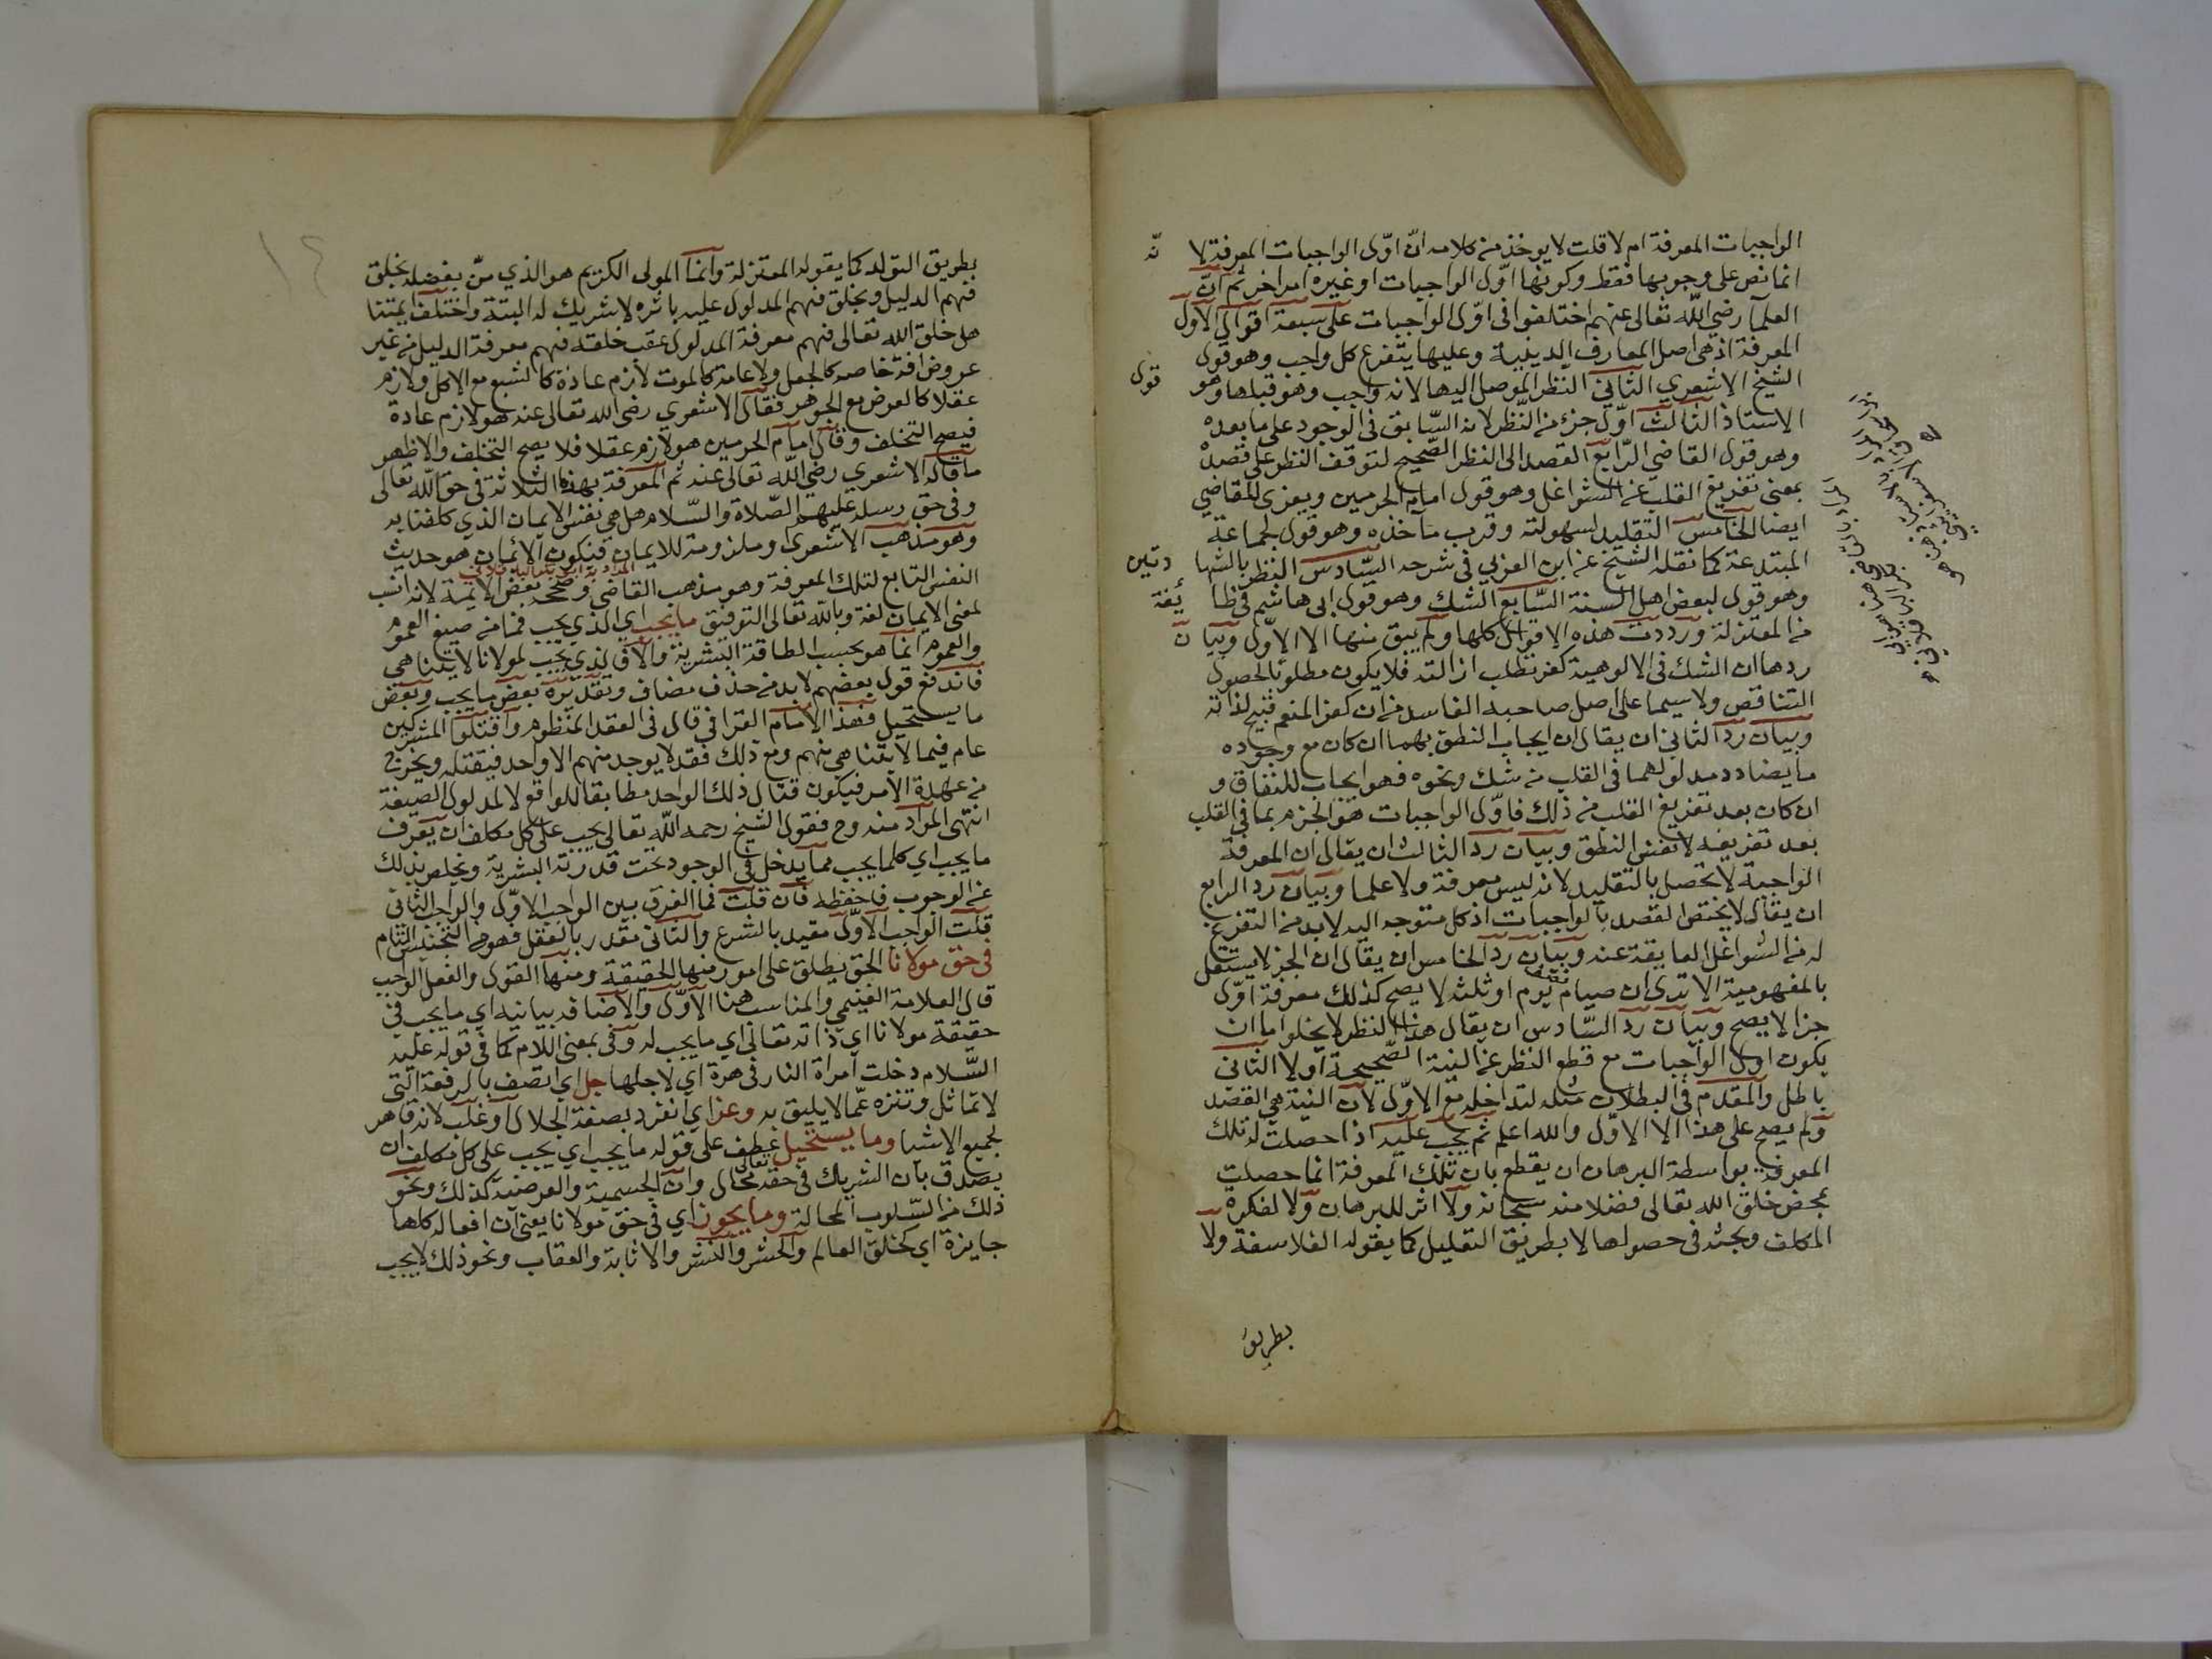 الواجبات المعرفة ام لا قلت لا يوخذ من كلامه ان اوّل الواجبات المعرفة لا نّه
انما نص على وجوبها فقط وكونها اوّل الواجبات او غيره امر اخر ثم انّ
العلمآ رضي اللّه تعالى عنهم اختلفوا فى اوّل الواجبات على سبعة اقوال الاول
المعرفة اذ هى اصل المعارف الدينية وعليها يتفرع كل واجب وهو قول
الشيخ الاشعري الثاني النظر الموصل اليها لانه واجب وهو قبلها وهو قول
الاستاذ الثالث اوّل جزء من النّظر لانه السّابق فى الوجود على ما بعده
وهو قول القاضي الرّابع القصد الى النظر الصّحيح لتوقف النظر على قصده
بمعنى تفريغ القلب عن الشواغل وهو قول امام الحرمين ويعزى للقاضي
ايضا الخامس التقليد لسهولته وقرب مآخذه وهو قول لجماعة
المبتدعة كما نقله الشيخ عن ابن العزبي فى شرحه السّادس النطق بالشها دتين
وهو قول لبعض اهل السنة السّابع الشك وهو قول ابى هاشم فى طا يُفة
من المعتزلة ورددت هذه الاقوال كلها ولم يبق منها الا الاوّل وبيا ن
ردها ان الشك فى الالوهية كفر تطلب ازالته فلا يكون مطلوبًا لحصول
التناقص ولا سيما على اصل صاحبه الفاسد من ان كفر المنعم قبيح لذاته
وبيان رد الثاني ان يقال ان ايجاب النطق بهما ان كان مع وجوده
ما يضادد مدلولهما فى القلب من شك ونحوه فهو ايجاب للنفاق و
ان كان بعد تفريغ القلب من ذلك فاوّل الواجبات هو الجزم بما فى القلب
بعد تفريغه لا نفس النطق وبيان رد الثالث ان يقال ان المعرفة
الواجبة لا تحصل بالتقليد لانه ليس معرفة ولا علما وبيان رد الرابع
ان يقال لا يختص القصد بالواجبات اذ كل متوجه اليه لا بد من التفرغ
له من الشواغل العايقة عنه وبيان رد الخامس ان يقال ان الجزء لا يستقل
بالمفهومية الا ترى ان صيام نصف يوم او ثلثه لا يصح كذلك معرفة اوّل
جزء لا يصح وبيان رد السّادس ان يقال هذا النظر لا يخلوا اما ان
يكون اول الواجبات مع قطع النظر عن النية الصّحيحة اولا الثانى
باطل والمقدم فى البطلان مثله لتداخله مع الاوّل لان النية هي القصد
ولم يصح على هذا الا الاول والله اعلم ثم يجب عليه اذا حصلت له تلك
المعرفة بواسطة البرهان ان يقطع بان تلك المعرفة انما حصلت
بمحض خلق الله تعالى فضلا منه سبحانه ولا اثر للبرهان ولا لفكره
المكلف وبحثه فى حصولها لا بطريق التعليل كما يقوله الفلاسفة ولا
بطريق
بطريق التولد كما يقوله المعتزلة وانما المولى الكريم هو الذي منّ بفضله بخلق
فهم الدليل وبخلق فهم المدلول عليه باثره لا شريك له البتة واختلف ايمتنا
هل خلق الله تعالى فهم معرفة المدلول عقب خلقه فهم معرفة الدليل من غير
عروض افة خاصه كالجهل ولا عامة كالموت لازم عادة كالشبع مع الاكل ولازم
عقلا كالعرض مع الجوهر فقال الاشعري رضى الله تعالى عنه هو لازم عادة
فيصح التخلف وقال امام الحرمين هو لازم عقلا فلا يصح التخلف والاظهر
ما قاله الاشعري رضي اللّه تعالى عنه ثم المعرفة بهذه الثلاثة فى حق اللّه تعالى
وفى حق رسله عليهم الصّلاة والسّلام هل هي نفس الايمان الذي كلفنا به
وهو مذهب الاشعرى او ملزومة للايمان فيكون الائمان هو حديث
النفس التابع لتلك المعرفة وهو مذهب القاضي وصححه بعض الايمة لانه انسب
لمعنى الايمان لغة وباللّه تعالى التوفيق ما يجب اي الذي يجب فما من صيغ العموم
والعموم انما هو بحسب الطاقة البشرية والا فالذي يجب لمولانا لا يتناهى
فاندفع قول بعضهم لا بد من حذف مضاف وتقديره بعض ما يجب وبعض
ما يستحيل فهذا الامام القرافي قال فى العقد المنظوم واقتلوا المشركين
عام فيما لا يتناهى منهم ومع ذلك فقد لا يوجد منهم الا واحد فيقتله ويخرج
من عهدة الامر فيكون قتال ذلك الواحد مطابقا للواقع لا لمدلول الصيغة
انتهى المراد منه وح فقول الشيخ رحمه اللّه تعالى يجب على كل مكلف ان يعرف
ما يجب اي كلما يجب مما يدخل فى الوجود تحت قدرته البشرية ويخلص بذلك
عن الوجوب فاحفظه فان قلت فما الفرق بين الواجب الاوّل والواجب الثاني
قلت الواجب الاوّل مقيد بالشرع والثانى مقدر بالعقل فهو من التجنيس التام
فى حق مولانا الحق يطلق على امور منها الحقيقة ومنها القول والفعل الواجب
قال العلامة الغنيمي والمناسب هنا الاوّل والاضافه بيانيه اي ما يجب في
حقيقة مولانا اي ذاته تعالى اي ما يجب له وفى بمعنى اللام كما فى قوله عليه
السّلام دخلت امراة النار فى هرة اي لاجلها جل اي اتصف بالرفعة التى
لا تماثل وتنزه عمّا لا يليق به وعز اي انفرد بصفة الجلال او غلب لانه قاهر
لجميع الاشيا وما يستحيل عطف على قوله ما يجب اي يجب على كل مكلف ان
يصدق بان الشريك فى حقه تعالى محال وان الجسمية والعرضية كذلك ونحو
ذلك من السّلوب المحالة وما يجوز اي فى حق مولانا يعني ان افعاله كلها
جايزة اي كخلق العالم والحشر والنشر والاثابة والعقاب ونحو ذلك لا يجب